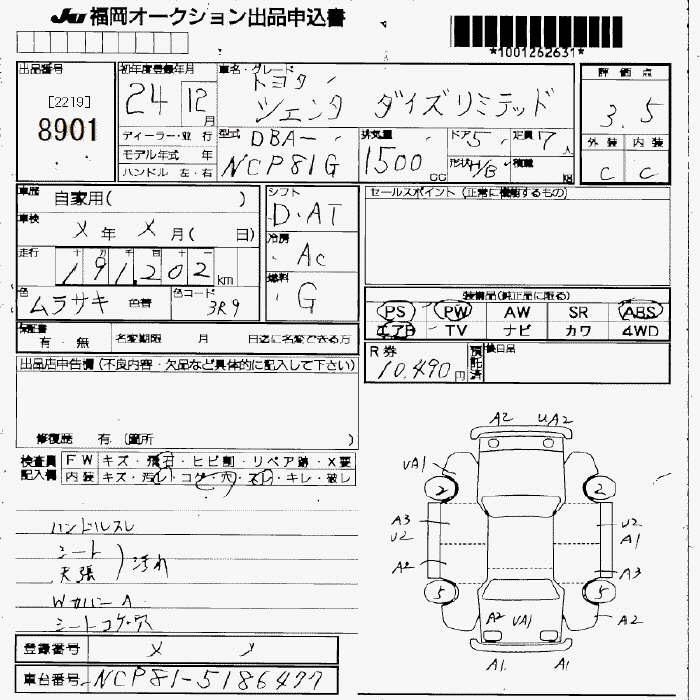 JU 福岡オークション出品申込書
*1001262631*
出品番号
[2219]
8901
初年度登録年月
24 12月
ディーラー・並 行
モデル年式 年
ハンドル 左・右
車名・グレード
トヨタ
シエンタ ダイスリミテッド
型式 DBA-
NCP81G
排気量
1500 CC
ドア 5
定員 7人
形状 H/B
積載 kg
評価点
3.5
外装 内装
C C
車歴 自家用( )
車検
メ 年 メ 月( 日)
走行 十 万 千 百 十
191,202 km
色
ムラサキ 色替
色コード
3R9
シフト
D.AT
冷房
AC
燃料
G
セールスポイント (正常に機能するもの)
装備品(純正品に限る)
PS PW AW SR ABS
エアB TV ナビ カワ 4WD
保証書
有・無
名変期限 月 日迄に名変できる方
R券
10,490円
預託済
後日品
出品店申告欄 (不良内容・欠品など具体的に記入して下さい)
修復歴 有 (箇所 )
検査員記入欄
FW キズ・飛石・ヒビ割・リペア跡・X要
内装 キズ・汚レ・コゲ・穴・スレ・キレ・破レ
ハンドルスレ
シート
天張 ) 汚れ
WカバーA
シートコゲ穴
登録番号 メ
車台番号 NCP81-5186477
A2 UA2
UA1
2 2
A3 U2
U2 A1
A2 A3
5 5
A2 UA1 A2
A1 A1